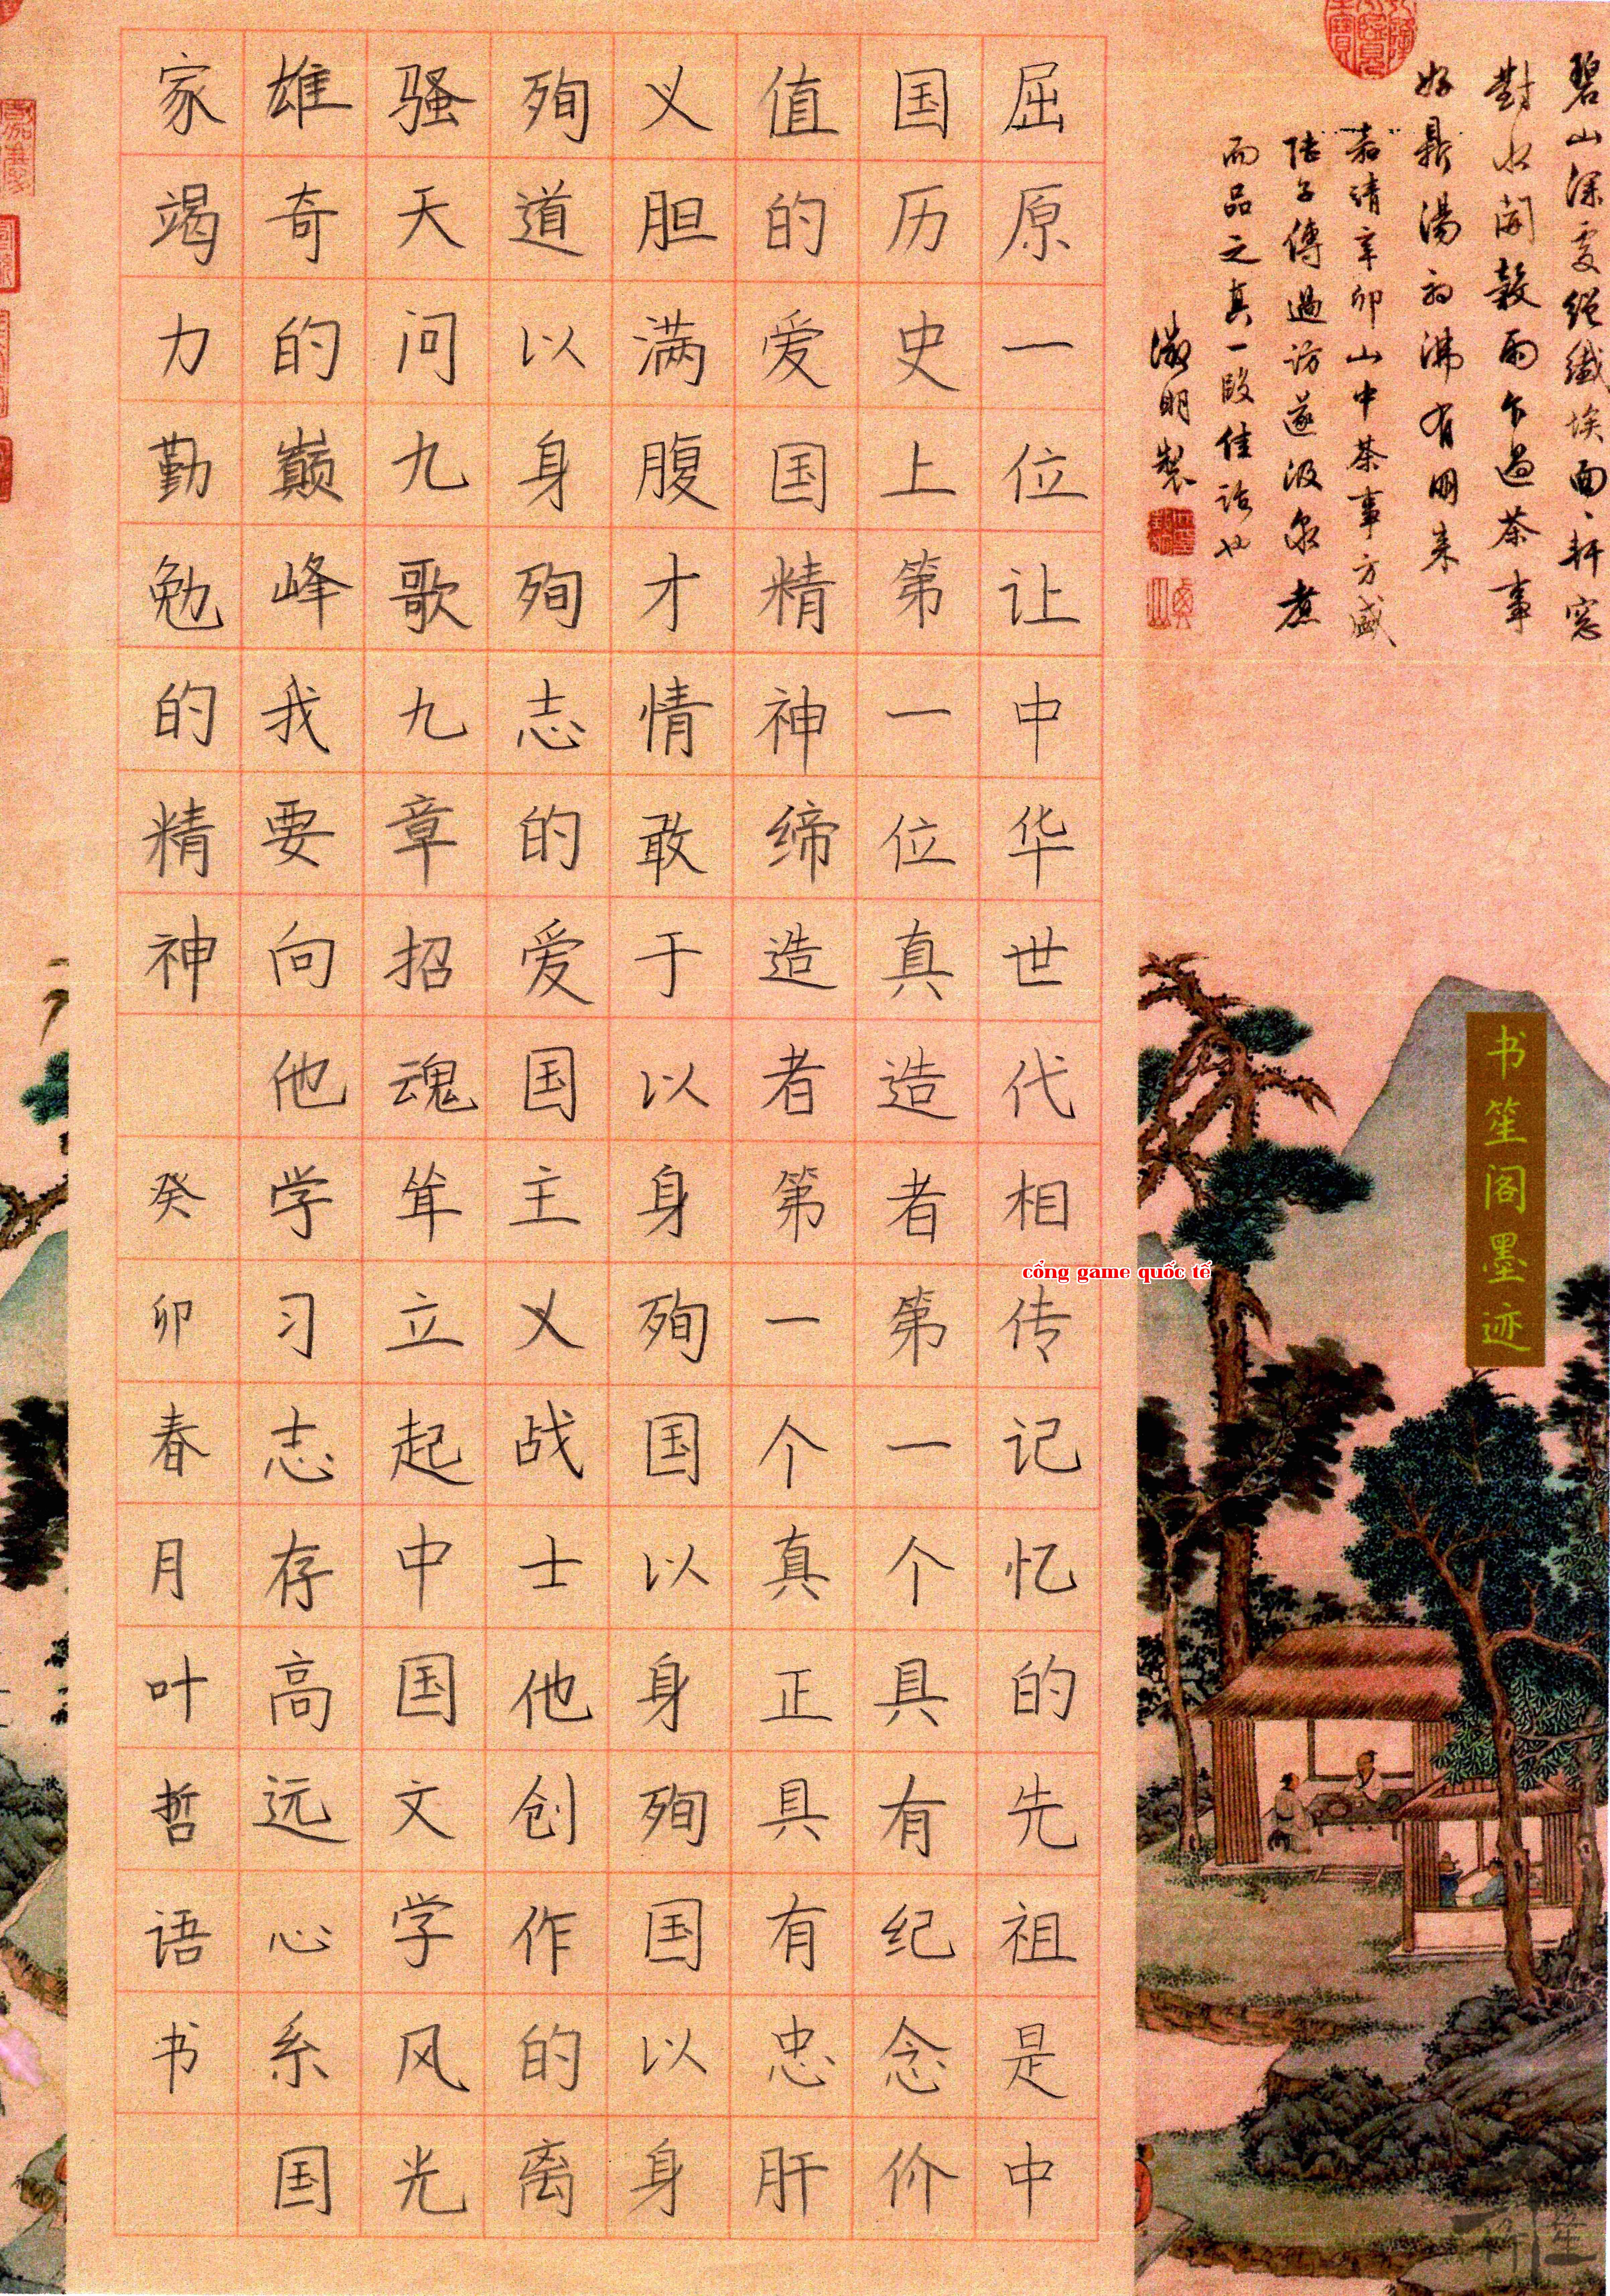 碧山深處絕纖埃面面軒窓
對水開穀雨乍過茶事
好鼎湯初沸有朋来
嘉靖辛卯山中茶事方盛
陸子傳過訪遂汲泉煮
而品之真一段佳話也
徵明製
书笙阁墨迹
屈原一位让中华世代相传记忆的先祖是中
国历史上第一位真造者第一个具有纪念价
值的爱国精神缔造者第一个真正具有忠肝
义胆满腹才情敢于以身殉国以身殉国以身
殉道以身殉志的爱国主义战士他创作的离
骚天问九歌九章招魂耸立起中国文学风光
雄奇的巅峰我要向他学习志存高远心系国
家竭力勤勉的精神 癸卯春月叶哲语书
cổng game quốc tế